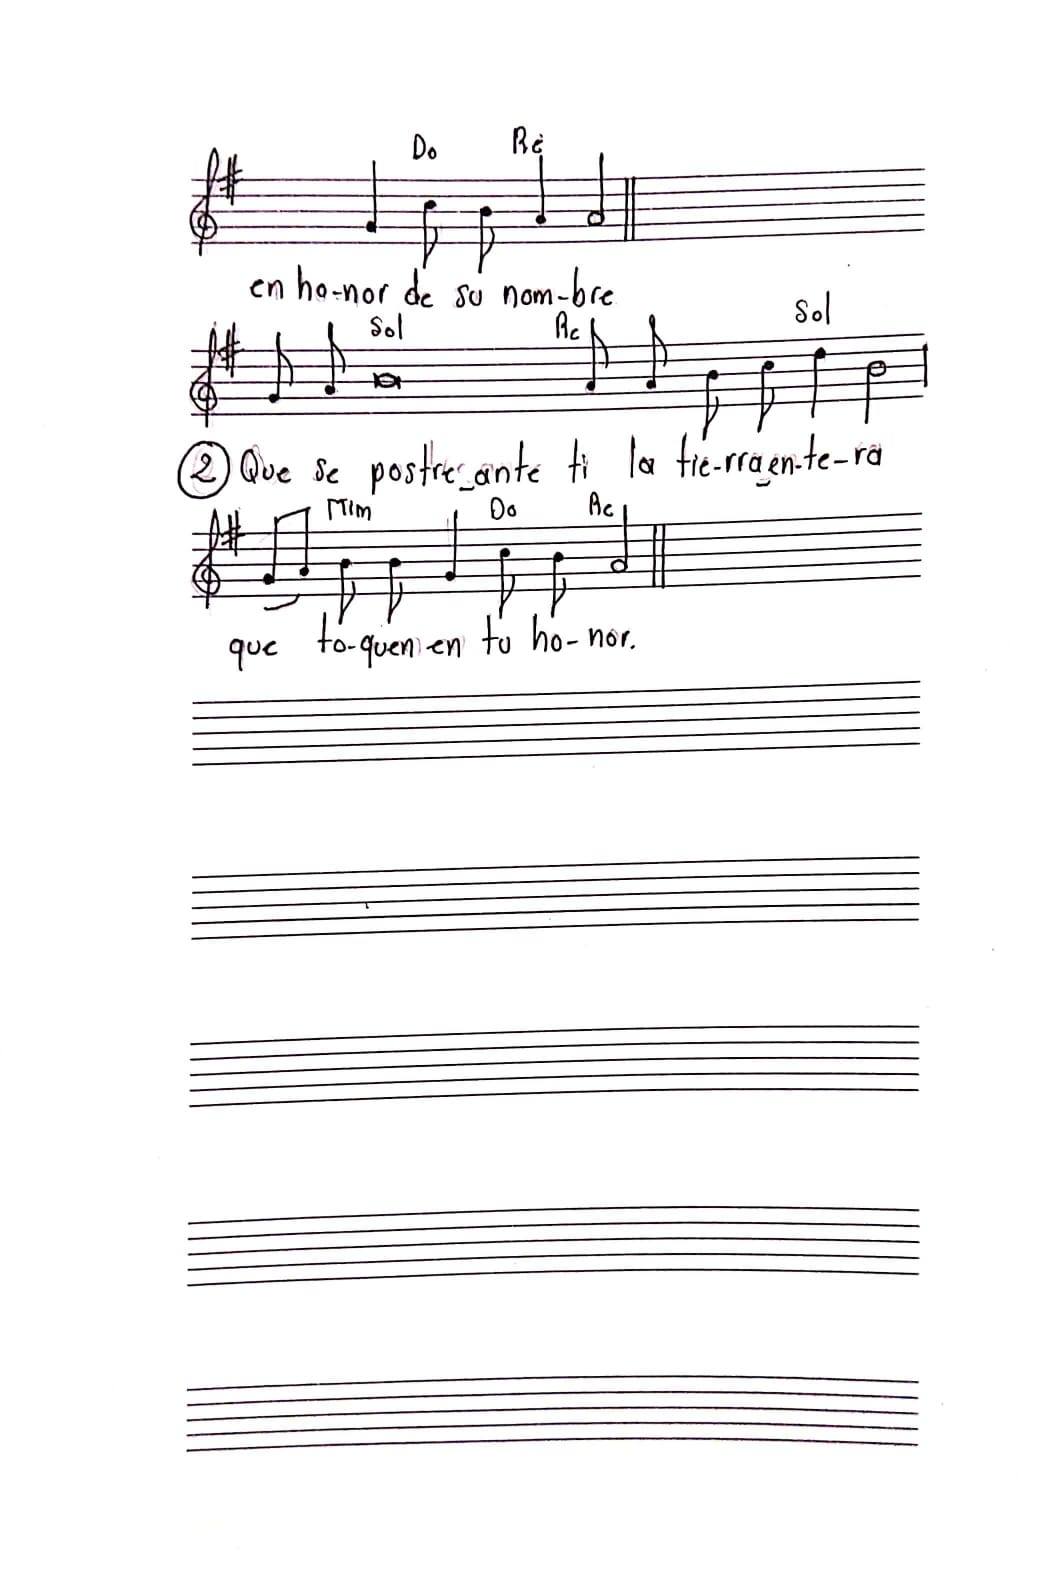 Do Re
en ho-nor de su nom-bre
Sol Re Sol
② Que se postre_ante ti la tie-rra_en-te-ra
Mim Do Re
que to-quen en tu ho-nor.